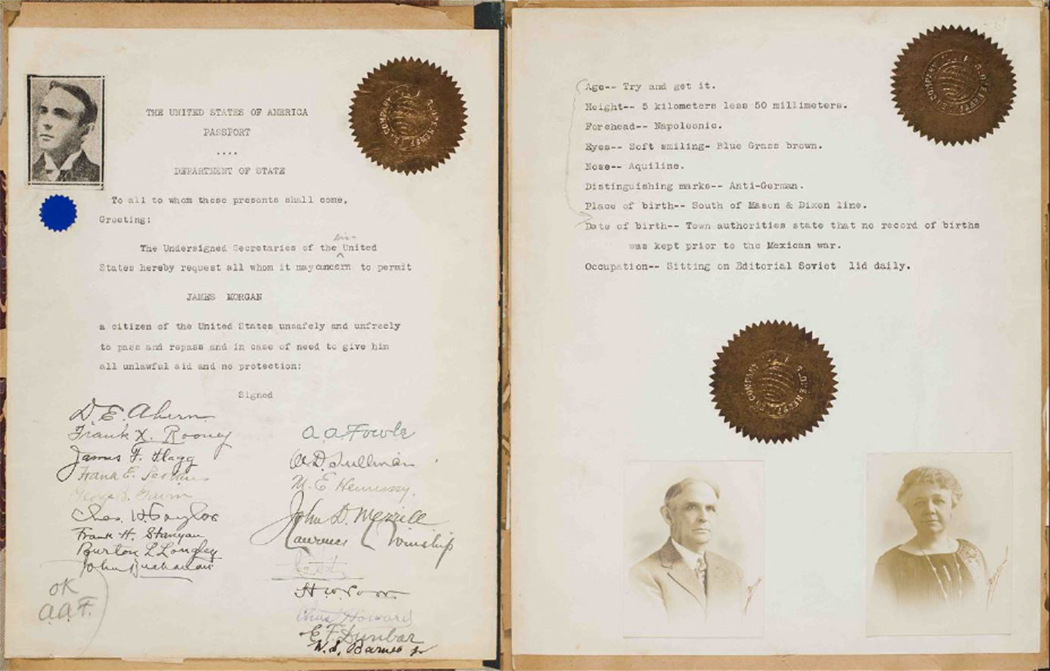 THE UNITED STATES OF AMERICA
PASSPORT
....
DEPARTMENT OF STATE
To all to whom these presents shall come,
Greeting:
The Undersigned Secretaries of the United
States hereby request all whom it may concern to permit
JAMES MORGAN
a citizen of the United States unsafely and unfreely
to pass and repass and in case of need to give him
all unlawful aid and no protection:
Signed
D. E. Ahern
Frank X. Rooney
James F. Flagg
Frank E.
Chas. H. Taylor
Frank H. Stanyan
Burton L Longley
John Buchanan
OK
a.a.F.
A A Fowle
M. E. Hennessy.
John D. Merrill
Laurence L Winship
Howard
E. F. Dunbar
W. S. Barnes Jr
Age-- Try and get it.
Height-- 5 kilometers less 50 millimeters.
Forehead-- Napoleonic.
Eyes-- Soft smiling- Blue Grass brown.
Nose-- Aquiline.
Distinguishing marks-- Anti-German.
Place of birth-- South of Mason & Dixon line.
Date of birth-- Town authorities state that no record of births
was kept prior to the Mexican war.
Occupation-- Sitting on Editorial Soviet lid daily.